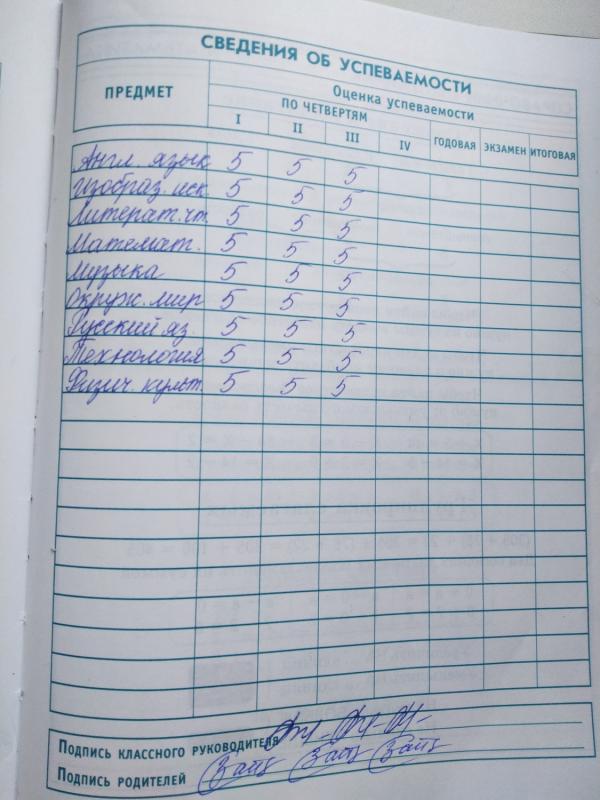 СВЕДЕНИЯ ОБ УСПЕВАЕМОСТИ
ПРЕДМЕТ
Оценка успеваемости
ПО ЧЕТВЕРТЯМ
I II III IV ГОДОВАЯ ЭКЗАМЕН ИТОГОВАЯ
Англ. язык 5 5 5
Изобраз. иск 5 5 5
Литерат. чт. 5 5 5
Математ. 5 5 5
Музыка 5 5 5
Окруж. мир 5 5 5
Русский яз 5 5 5
Технология 5 5 5
Физич. культ. 5 5 5
ПОДПИСЬ КЛАССНОГО РУКОВОДИТЕЛЯ
ПОДПИСЬ РОДИТЕЛЕЙ Заиц Заиц Заиц